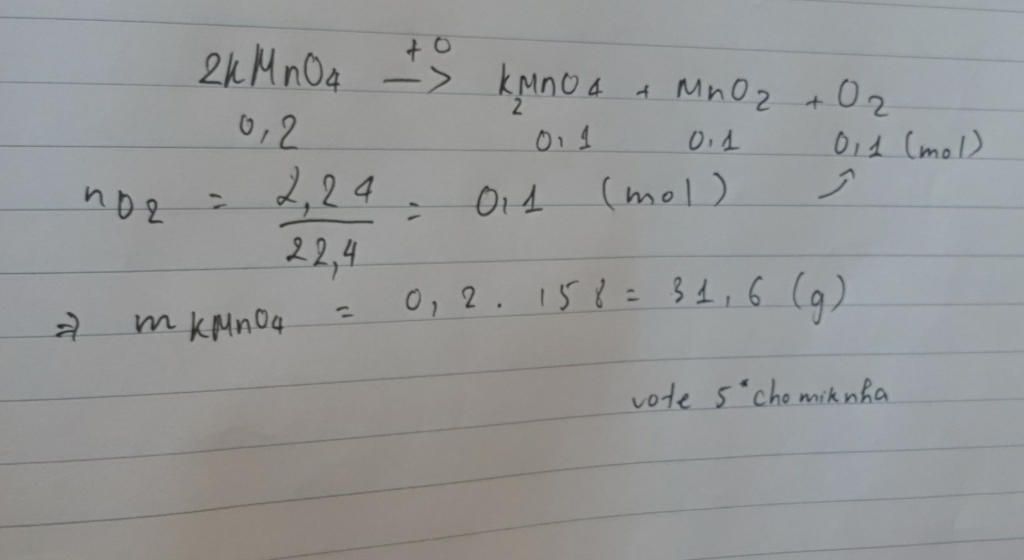 2kMnO4 +0 → k2MnO4 + MnO2 + O2
0,2 0,1 0,1 0,1 (mol)
nO2 = 2,24 / 22,4 = 0,1 (mol)
⇒ m kMnO4 = 0,2 . 158 = 31,6 (g)
vote 5* cho miknha